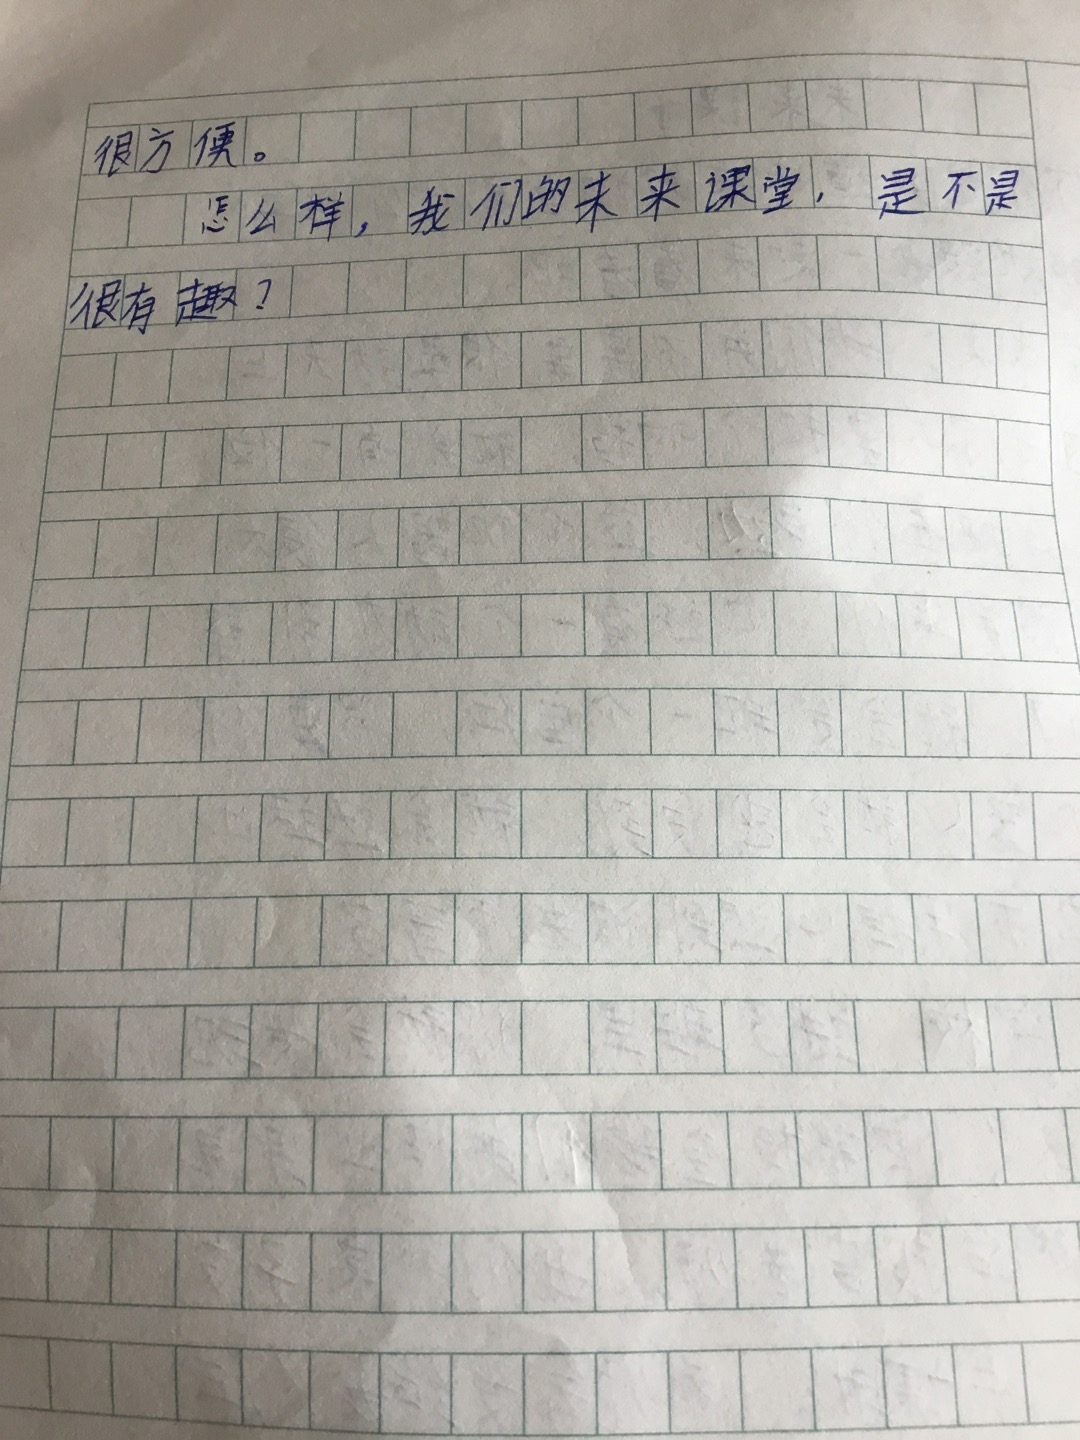 很方便。
怎么样，我们的未来课堂，是不是
很有趣？